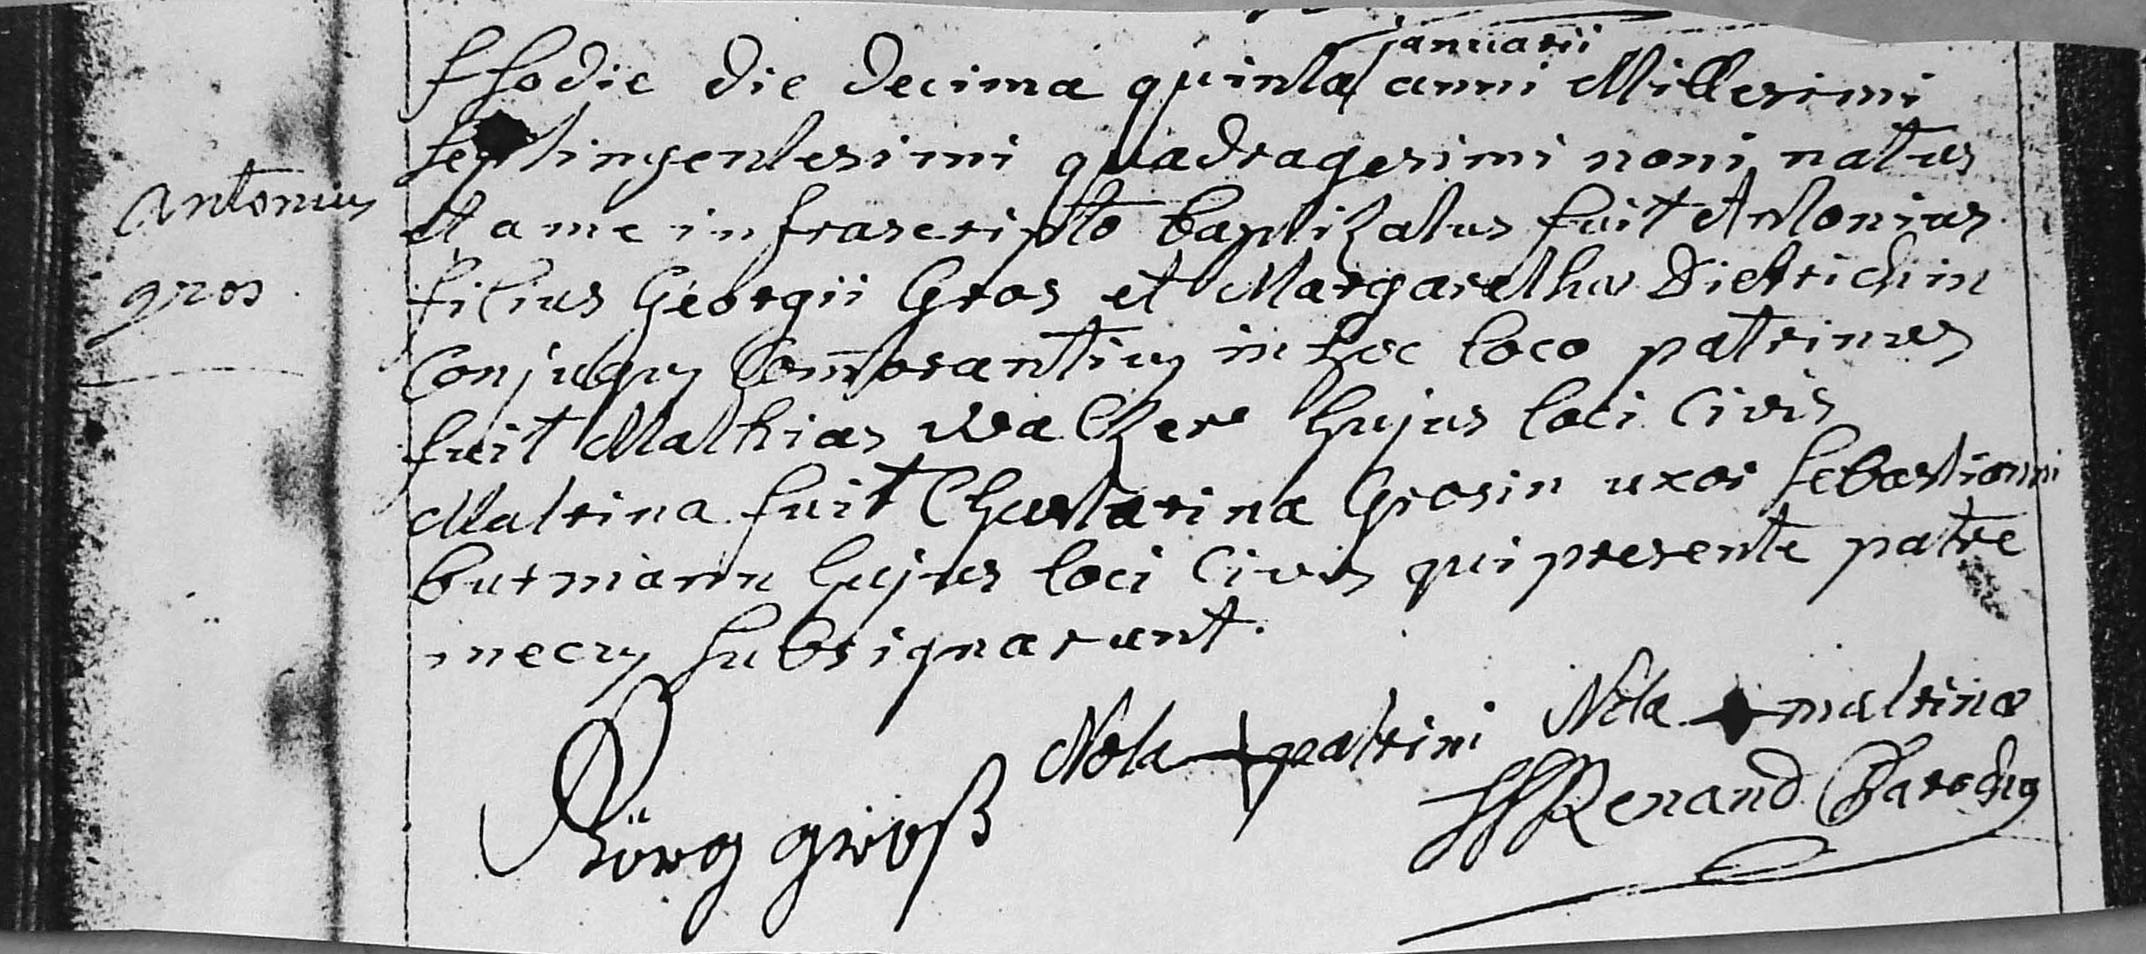 Antonius
gros
Hodie die decima quinta januarii anni Millesimi
septingentesimi quadragesimi noni natus
et a me infrascripto baptizatus fuit Antonius
filius Georgii Gros et Margaretha Dietrichin
Conjugu Com̄orantiu in hoc loco patrinus
fuit Mathias Walker hujus loci Civis
Matrina fuit Chatarina Grosin uxor sebastianni
burmann hujus loci Civis qui presente patre
mecu subsignarunt.
Nota patrini Nota matrinæ
Görg groß Renand Parochus